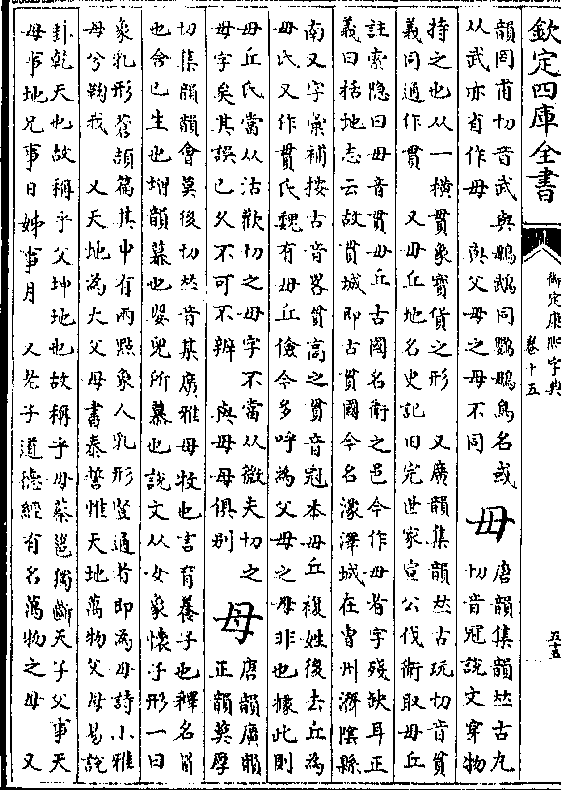 欽定四庫全書
御定康熙字典
卷十五
五十五
韻罔甫切音武與鵡䳇同鸚鵡鳥名或
从武亦省作母 與父母之母不同
毌
唐韻集韻𠀤古丸
切音冠說文穿物
持之也从一橫貫象寶貨之形 又廣韻集韻𠀤古玩切音貫
義同通作貫 又毌丘地名史記田完世家宣公伐衛取毌丘
註索隱曰毌音貫毌丘古國名衛之邑今作毋者字殘缺耳正
義曰括地志云故貫城即古貫國今名濛澤城在曹州濟陰縣
南又字彙補按古音畧貫高之貫音冠本毌丘複姓後去丘為
毌氏又作貫氏魏有毌丘儉今多呼為父母之母非也據此則
毌丘氏當从沽歡切之毌字不當从微夫切之
毋字矣其誤已久不可不辨 與毋母俱别
母
唐韻廣韻
正韻莫厚
切集韻韻會莫後切𠀤音某廣雅母牧也言育養子也釋名冒
也含已生也增韻慕也嬰兒所慕也說文从女象懷子形一曰
象乳形蒼頡篇其中有兩點象人乳形豎通者即為毋詩小雅
母兮鞠我 又天地為大父母書泰誓惟天地萬物父母易說
卦乾天也故稱乎父坤地也故稱乎母蔡邕獨斷天子父事天
母事地兄事日姊事月 又老子道德經有名萬物之母 又